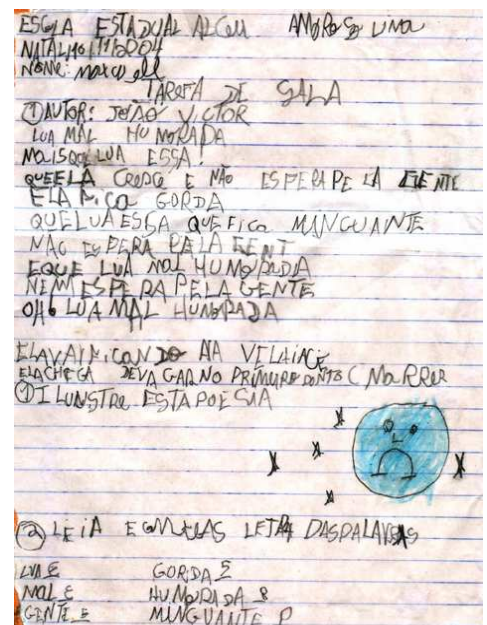 ESCOLA ESTADUAL ALCEU AMOROSO LIMA
NATAL 1/11/2004
NOME: Marcoell
TAREFA DE SALA
① AUTOR: JOÃO VICTOR
LUA MAL HUMORADA
MAIS QUE LUA ESSA!
QUE ELA CRESCE E NÃO ESPERA PE LA GENTE
ELA FICA GORDA
QUE LUA ESSA QUE FICA MANGUANTE
NÃO ESPERA PELA GENT
EQUE LUA MAL HUMORADA
NEM ESPERA PELA GENTE
OH LUA MAL HUMORADA
ELA VAI FICANDO NA
ELA CHEGA DEVAGAR NO
① ILUNSTRE ESTA POESIA
② LEIA E LETRA DAS PALAVRAS
LUA E GORDA 5
MAL E HUMORADA 8
GENTE E MINGUANTE P